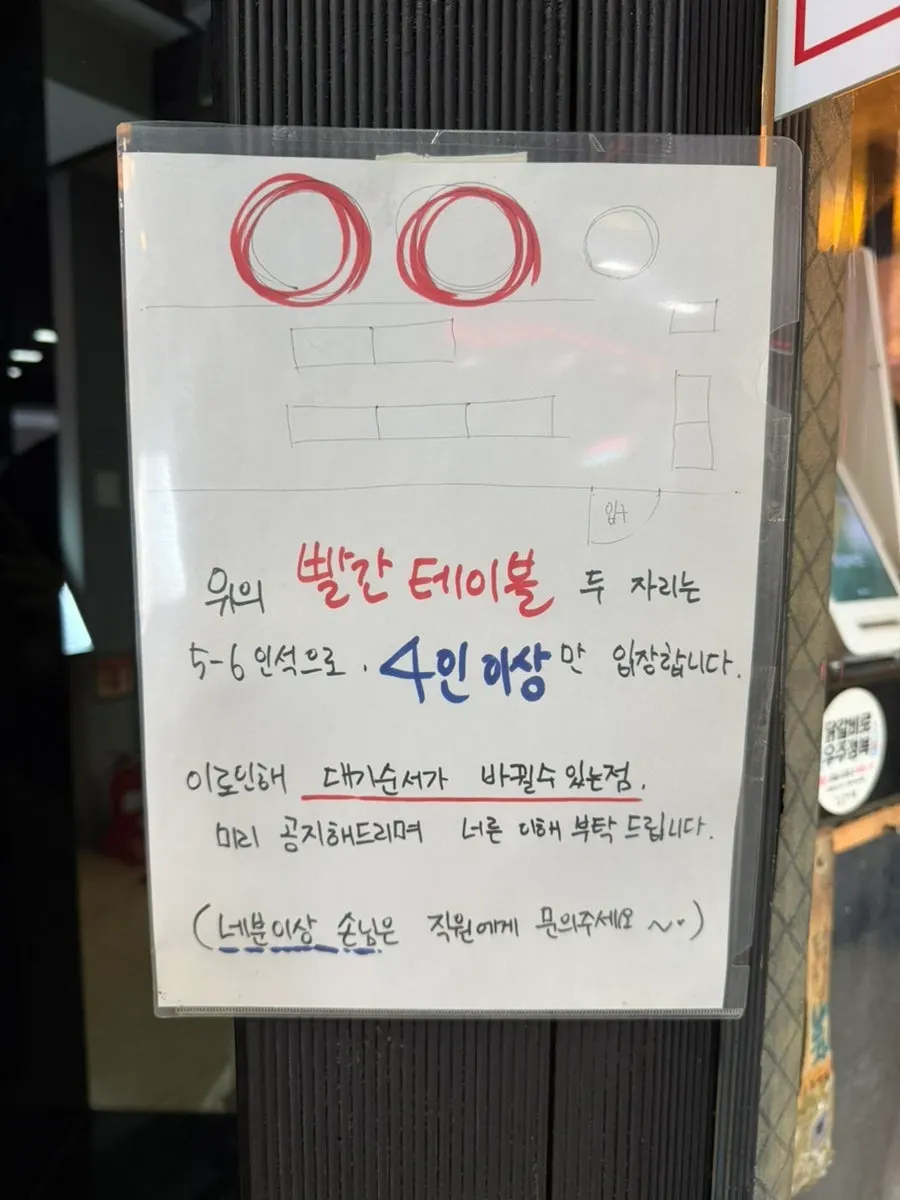 입구
위의 빨간 테이블 두 자리는
5-6인석으로. 4인 이상만 입장합니다.
이로인해 대기순서가 바뀔수 있는점.
미리 공지해드리며 너른 이해 부탁드립니다.
(네분이상 손님은 직원에게 문의주세요 ~·)
닭갈비로
우주정복